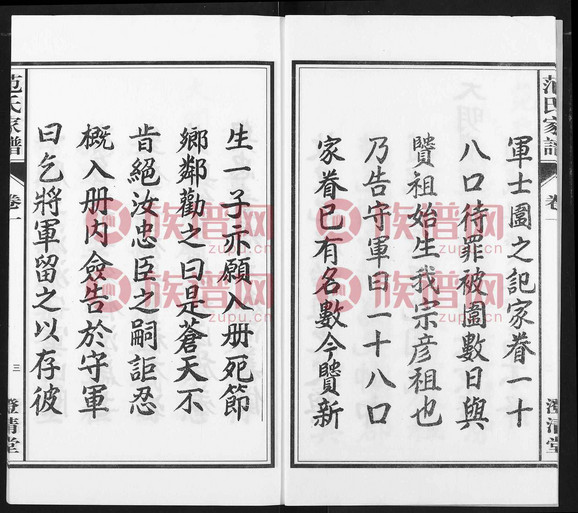 范氏家譜
卷一
澄清堂
軍士圍之記家眷一十
八口待罪被圍數日與
贒祖始生我宗彦祖也
乃告守軍曰一十八口
家眷已有名數今贒新
生一子亦願入册死節
鄉鄰勸之曰是蒼天不
肯絕汝忠臣之嗣詎忍
概入册内僉告於守軍
曰乞將軍留之以存彼
范氏家譜
卷一
三
澄清堂
族譜网
zupu.cn
族譜网
zupu.cn
族譜网
zupu.cn
族譜网
zupu.cn